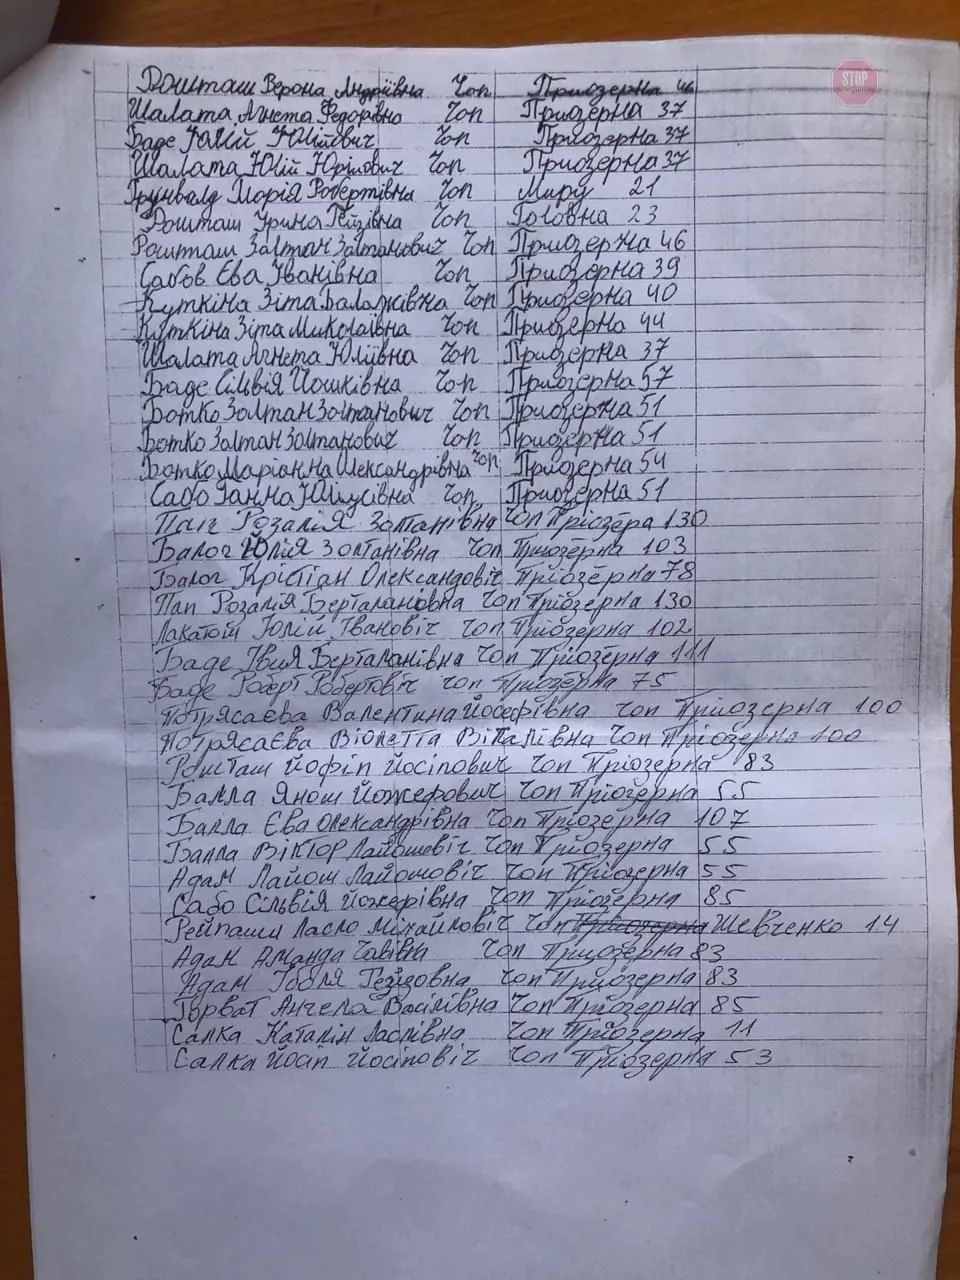 Рошташ Верона Андріївна Чоп Приозерна 46
STOP
Шалата Агнета Федорівна Чоп Приозерна 37
Баде Юлій Юлійович Чоп Приозерна 37
Шалата Юлій Юрійович Чоп Приозерна 37
Грунвалд Марія Робертівна Чоп Миру 21
Рошташ Ірина Гейзівна Чоп Головна 23
Рошташ Залтан Залтанович Чоп Приозерна 46
Сабов Єва Іванівна Чоп Приозерна 39
Куткіна Зіта Балажівна Чоп Приозерна 40
Куткіна Зіта Миколаївна Чоп Приозерна 44
Шалата Агнета Юліївна Чоп Приозерна 37
Баде Сільвія Йошківна Чоп Приозерна 57
Ботко Золтан Золтанович Чоп Приозерна 51
Ботко Золтан Золтанович Чоп Приозерна 51
Ботко Маріанна Олександрівна Чоп Приозерна 54
Сабо Ганна Юліусівна Чоп Приозерна 51
Пап Розалія Золтанівна Чоп Пріозера 130
Балог Юлія Золтанівна Чоп Приозерна 103
Балог Крістіан Олександовіч Чоп Пріозерна 78
Пап Розалія Берталановна Чоп Пріозерна 130
Лакатош Юлій Івановіч Чоп Пріозерна 102
Баде Берталанівна Чоп Пріозерна 111
Баде Роберт Робертовіч Чоп Пріозерна 75
Потрясаєва Валентина Йосефівна Чоп Пріозерна 100
Потрясаєва Віолетта Віталівна Чоп Пріозерна 100
Рошташ Йосіпович Чоп Пріозерна 83
Балла Янош Йожефович Чоп Пріозерна 55
Балла Єва Олександрівна Чоп Пріозерна 107
Балла Віктор Лайошевіч Чоп Пріозерна 55
Адам Лайош Лайошовіч Чоп Пріозерна 55
Сабо Сільвія Йожефівна Чоп Пріозерна 85
Рейпаши Ласло Міхайловіч Чоп Приозерна Шевченко 14
Адам Аманда Чоп Пріозерна 83
Адам Гезізовна Чоп Пріозерна 83
Горват Анчела Васілівна Чоп Пріозерна 85
Салка Каталін Ласлівна Чоп Пріозерна 11
Салка Йосіп Йосіповіч Чоп Пріозерна 53